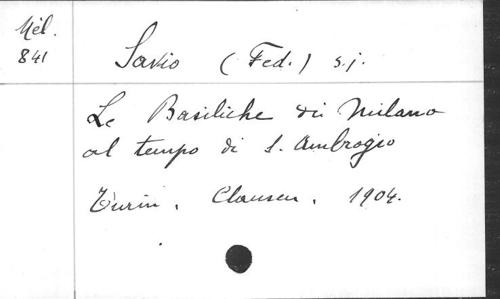 Mél.
841
Savio (Fed.) s.j.
Le Basiliche di Milano
al tempo di S. Ambrogio
Turin, Clausen, 1904.